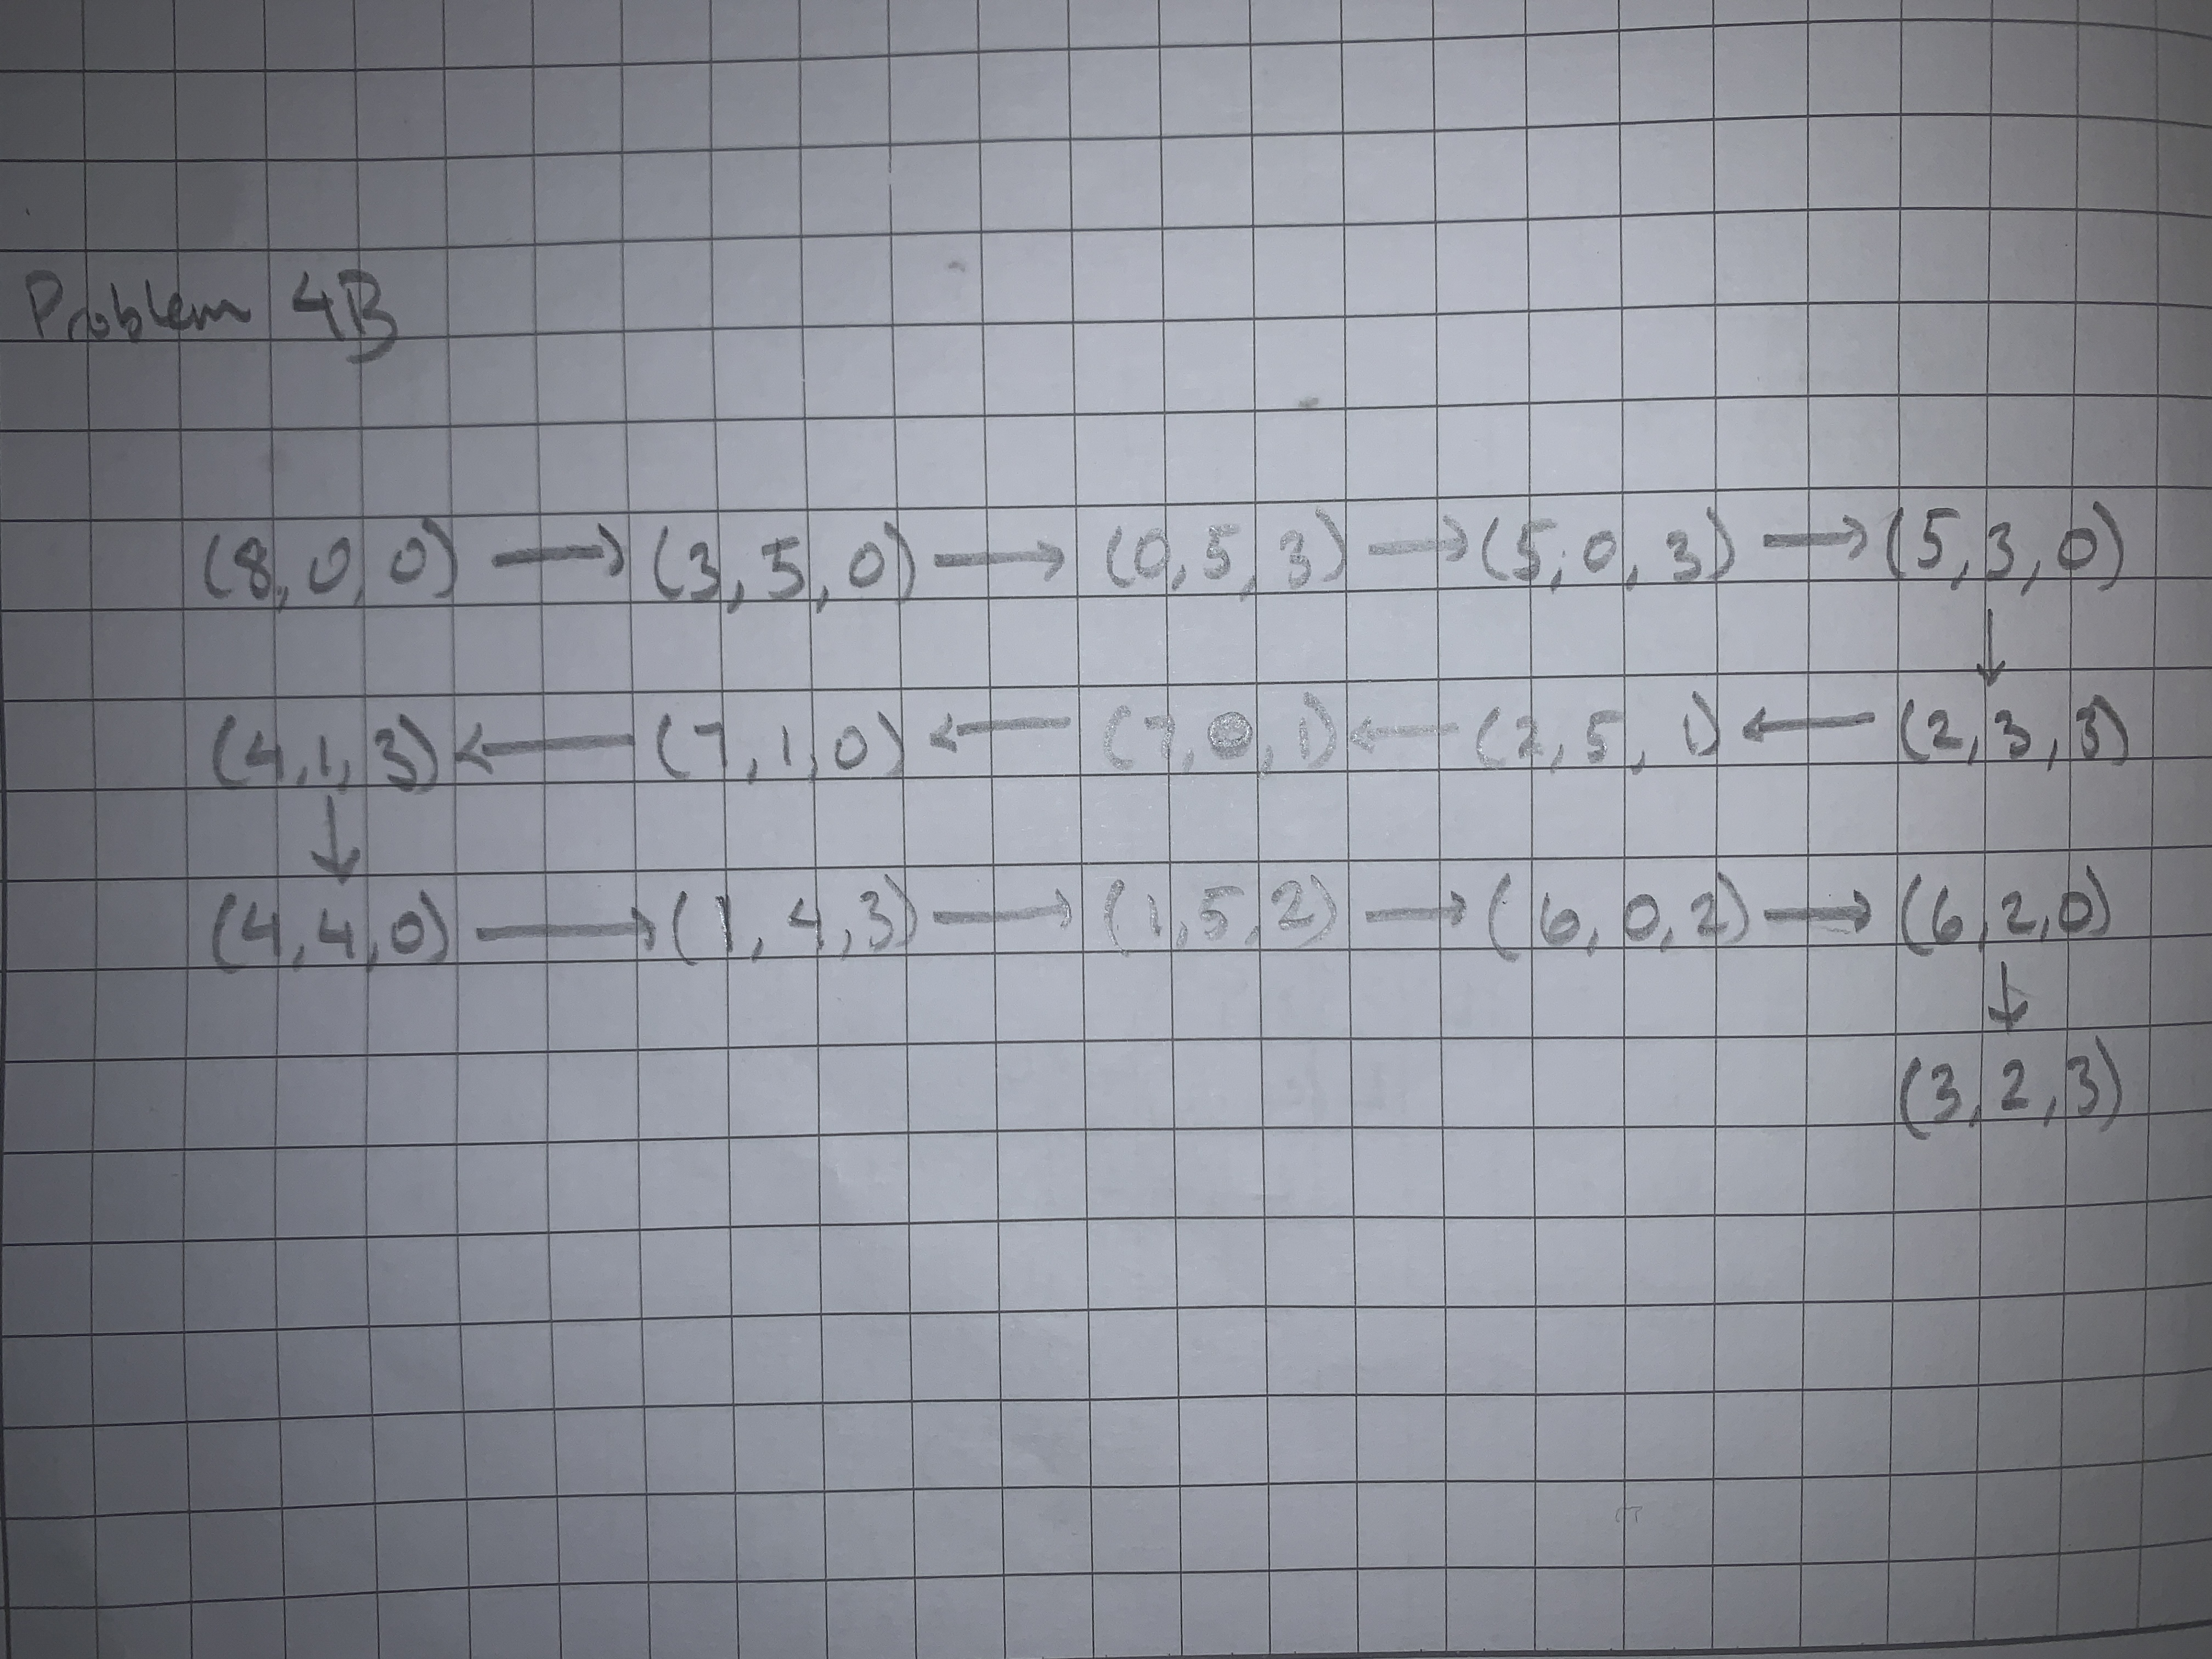 Problem 4B
(8,0,0) → (3,5,0) → (0,5,3) → (5,0,3) → (5,3,0)
↓
(4,1,3) ← (7,1,0) ← (7,0,1) ← (2,5,1) ← (2,3,3)
↓
(4,4,0) → (1,4,3) → (1,5,2) → (6,0,2) → (6,2,0)
↓
(3,2,3)